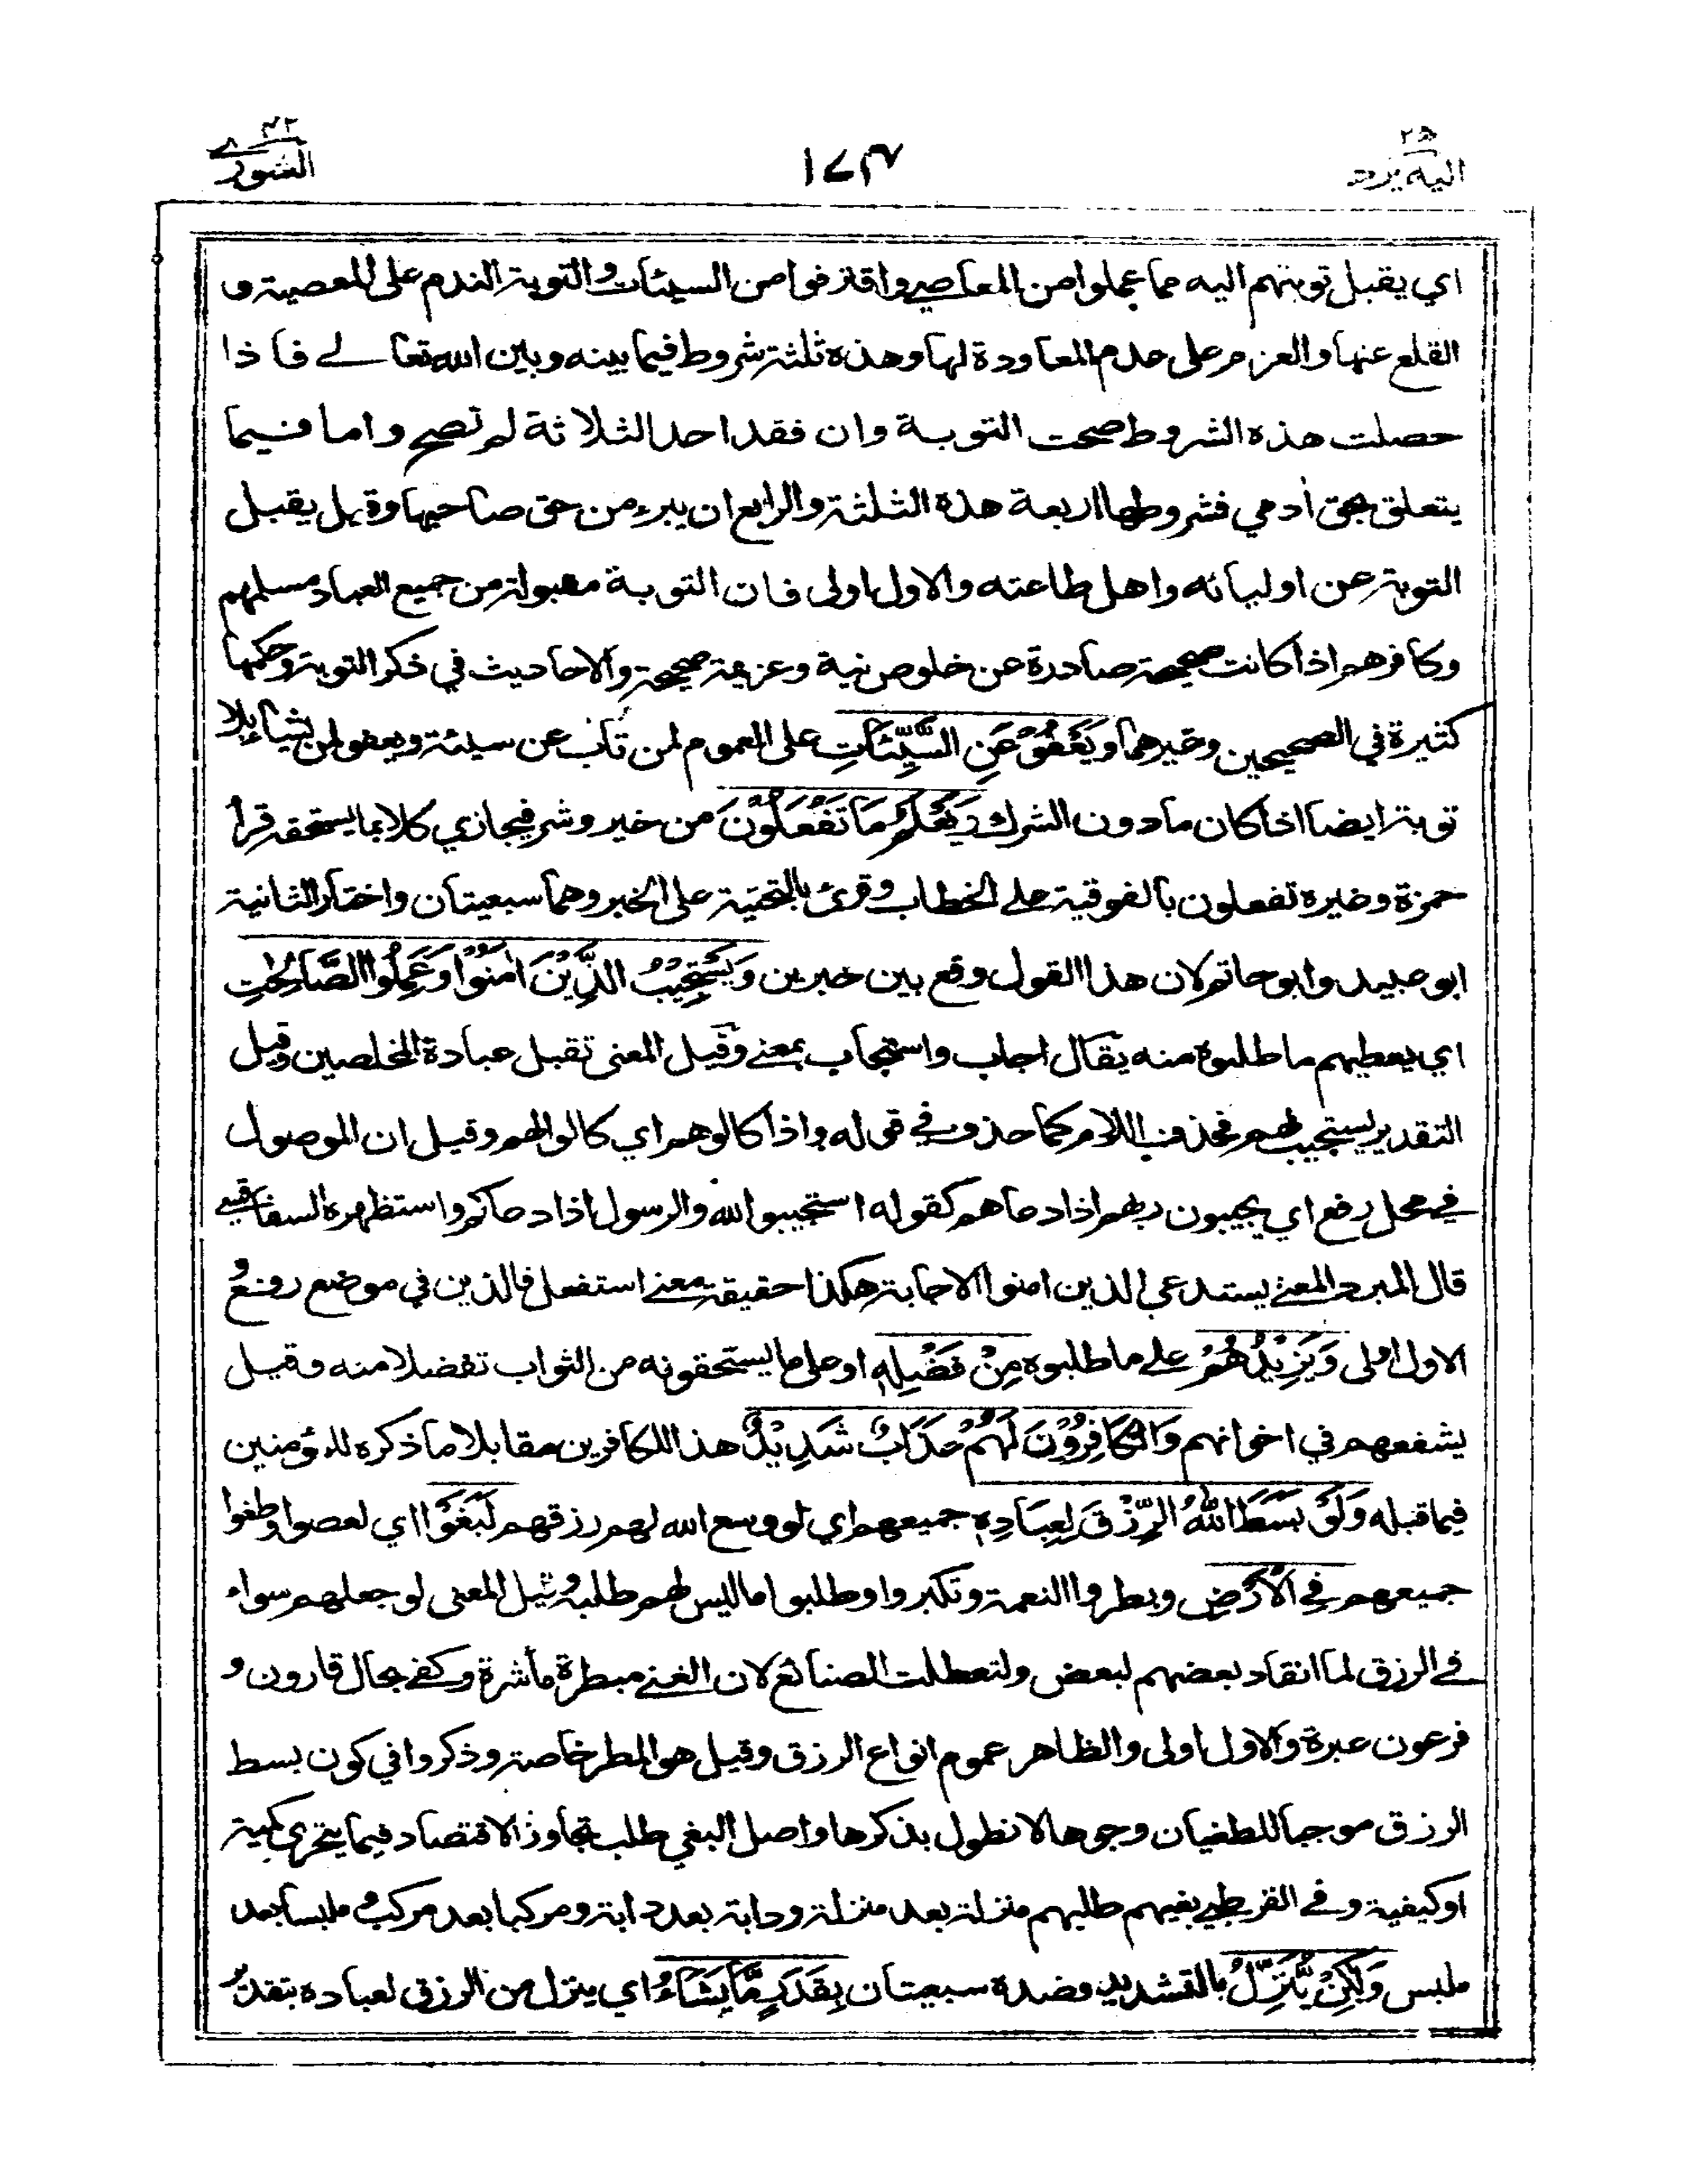 ٢٥
اليه يرد
١٧٣
٤٢
الشورے
اي يقبل توبتهم اليه مما عملوا من المعاصي واقترفوا من السيئات والتوبة الندم على المعصية و
القلع عنها والعزم على عدم المعاودة لها وهذه ثلثة شروط فيما بينه وبين الله تعالے فاذا
حصلت هذه الشروط صحت التوبة وان فقد احد الثلاثة لم تصح واما فيما
يتعلق بحق أدمي فشروطها اربعة هذه الثلثة والرابع ان يبرء من حق صاحبها وقيل يقبل
التوبة عن اوليائه واهل طاعته والاول اولى فان التوبة مقبولة من جميع العباد مسلمهم
وكافرهم اذا كانت صحيحة صادرة عن خلوص نية وعزيمة صحيحة والاحاديث في ذكر التوبة وحكمها
كثيرة في الصحيحين وغيرهما وَيَعْفُوْ عَنِ السَّيِّئَاتِ على العموم لمن تاب عن سيئة ويعفو لمن يشاء بلا
توبة ايضا اذا كان ما دون الشرك وَيَعْلَمُ مَا تَفْعَلُوْنَ من خير وشر فيجازي كلا بما يستحقه قرأ
حمزة وغيره تفعلون بالفوقية علے الخطاب وقرئ بالتحتية على الخبر وهما سبعيتان واختار الثانية
ابو عبيد وابو حاتم لان هذا القول وقع بين خبرين وَيَسْتَجِيْبُ الَّذِيْنَ اٰمَنُوْا وَعَمِلُوا الصَّالِحٰتِ
اي يعطيهم ما طلبوه منه يقال اجاب واستجاب بمعنے وقيل المعنى تقبل عبادة المخلصين وقيل
التقدير يستجيب لهم فحذف اللام كما حذف في قوله واذا كالوهم اي كالوا لهم وقيل ان الموصول
في محل رفع اي يجيبون ربهم اذا دعاهم كقوله استجيبوا لله والرسول اذا دعاكم واستظهره السفاقسي
قال المبرد المعنے يستدعي الذين امنوا الاجابة هكذا حقيقة معنے استفعل فالذين في موضع رفع و
الاول اولى وَيَزِيْدُهُمْ علے ما طلبوه مِنْ فَضْلِهٖ او على ما يستحقونه من الثواب تفضلا منه وقيل
يشفعهم في اخوانهم وَالْكَافِرُوْنَ لَهُمْ عَذَابٌ شَدِيْدٌ هذا للكافرين مقابلا ما ذكره للمؤمنين
فيما قبله وَلَوْ بَسَطَ اللهُ الرِّزْقَ لِعِبَادِهٖ جميعهم اي لو وسع الله لهم رزقهم لَبَغَوْا اي لعصوا وطغوا
جميعهم فِي الْاَرْضِ وبطروا النعمة وتكبروا وطلبوا ما ليس لهم طلبه وقيل المعنى لو جعلهم سواء
في الرزق لما انقاد بعضهم لبعض ولتعطلت الصنائع لان الغنے مبطرة مأشرة وكفے بحال قارون و
فرعون عبرة والاول اولى والظاهر عموم انواع الرزق وقيل هو المطر خاصة وذكروا في كون بسط
الرزق موجبا للطغيان وجوها لا نطول بذكرها واصل البغي طلب تجاوز الاقتصاد فيما يتحرى كمية
او كيفية وفے القرطبي بغيهم طلبهم منزلة بعد منزلة ودابة بعد دابة ومركبا بعد مركب وملبسا بعد
ملبس وَلٰكِنْ يُّنَزِّلُ بالتشديد وضده سبعيتان بِقَدَرٍ مَّا يَشَاءُ اي ينزل من الرزق لعباده بتقدير